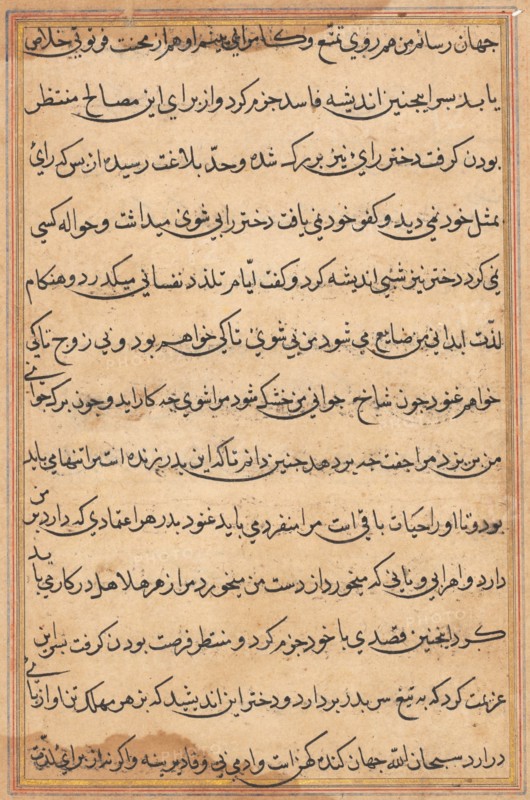 جهان رسانم من هم روی تمتّع و کامرانی بینم او هم از محنت فرتوتی خلاص
یابد پسر اینچنین اندیشه فاسد جزم کرد و از برای این مصالح منتظر
بودن کرفت دختر رای نیز بزرک شده و حدّ بلاغت رسیده از بس که رای
بمثل خود نمی دید و کفو خود نمی یافت دختر را بی شوی میداشت و حواله کسی
نمی کرد دختر نیز شبی اندیشه کرد و کفت ایّام تلذذ نفسانی میکذرد و هنکام
لذّت ابدانی من ضایع می شود من بی شوی تا کی خواهم بود و بی زوج تا کی
خواهم غنود چون شاخ جوانی من خشک شود مرا شوی چه کار اید و چون برک جوانی
من بریزد مرا جفت چه بر دهد چنین دانم تا که این پدر زنده است مرا تنها می باید
بود و تا او را حیات باقی است مرا منفرد می باید غنود پدر هر اعتمادی که دارد بر من
دارد و اهر ابی و نانی که میخورد از دست من میخورد مرا زهر هلاهل در کار می باید
کرد اینچنین قصدی با خود جزم کرد و منتظر فرصت بودن کرفت پسر این
عزیمت کرد که به تیغ سر پدر بردارد و دختر این اندیشید که بزهر مهلک تن او از پای
درارد سبحان الله جهان کنده کهن است و ادمی بی وفا دیرینه و اکر نه از برای لذّت